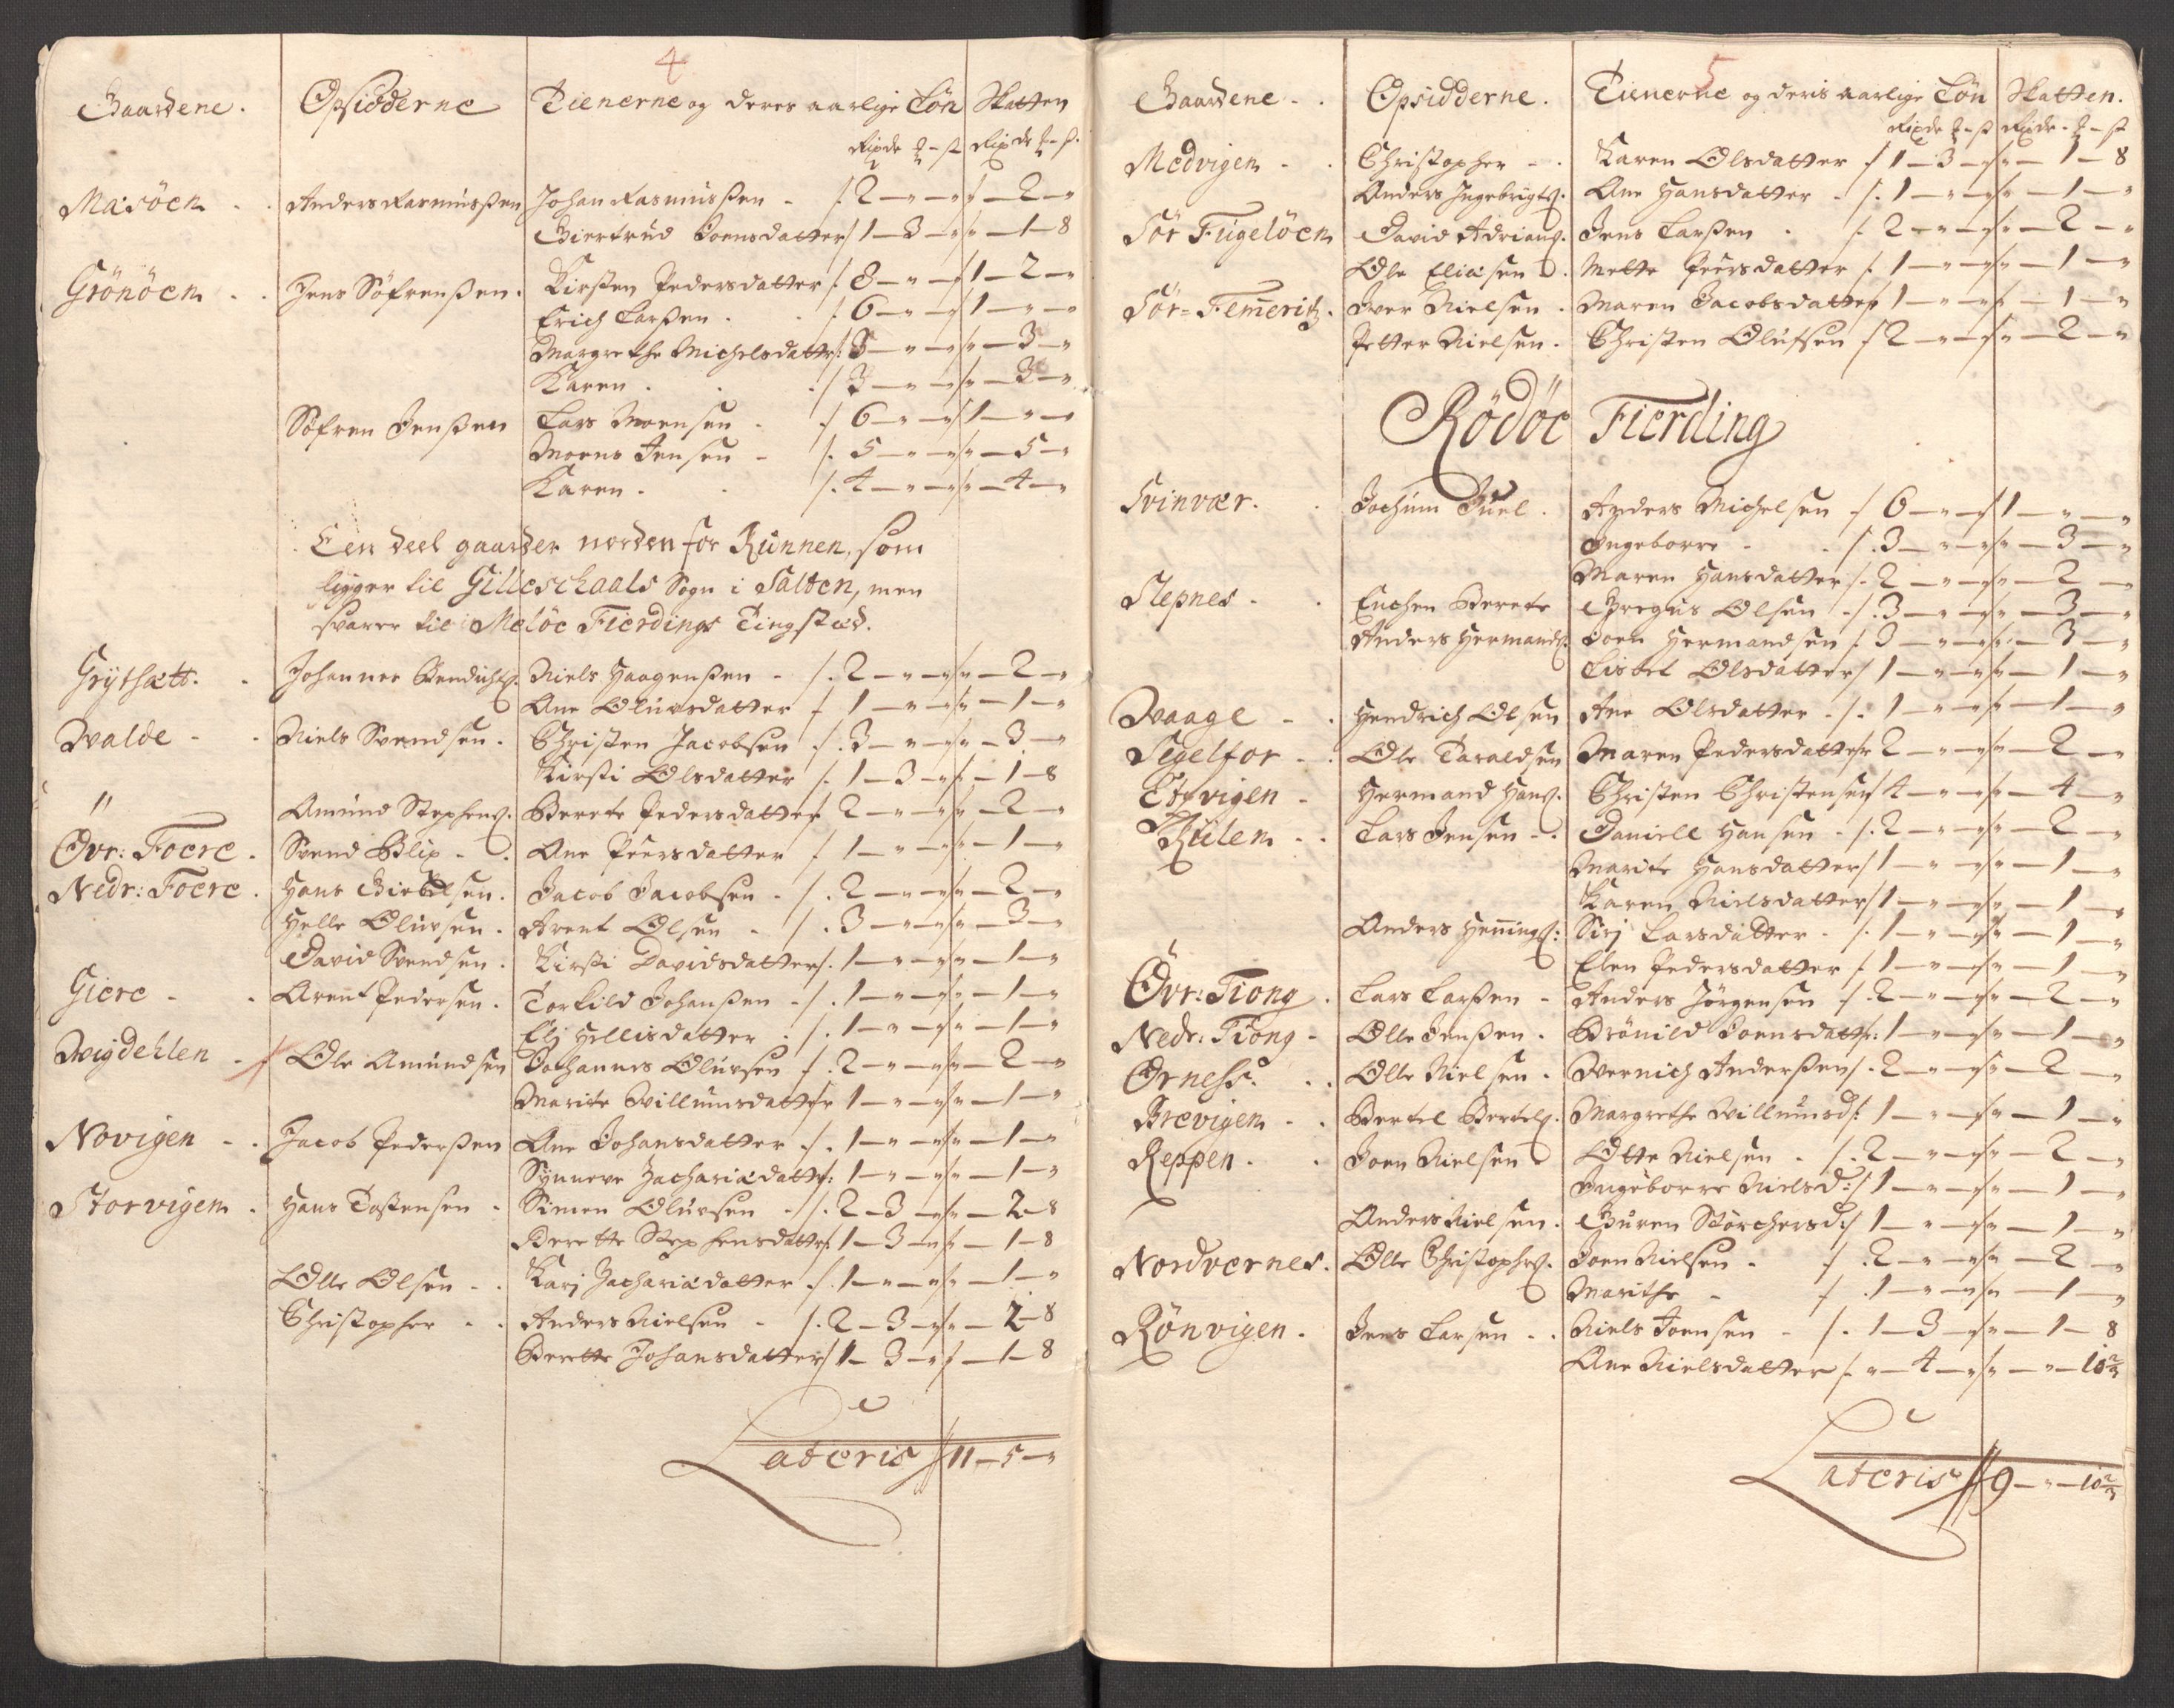 4
Gaardene. Opsidderne Tienerne og deres aarlige Løn Skatten
Rixdr ß Rixdr ß
Masöen Anders Rasmusßen Johan Rasmusßen 2 - " - " " - 2 - "
Giertrud Joensdatter 1 - 3 - " " - 1 - 8
Grönöen Jens Söfrensßen Kirsten Pedersdatter 8 - " - " 1 - 2 - "
Erich Larsßen 6 - " - " 1 - " - "
Margrethe Michelsdattr: 3 - " - " " - 3 - "
Karen 3 - " - " " - 3 - "
Söfren Jensßen Lars Moensen 6 - " - " 1 - " - "
Moens Jensen 5 - " - " " - 5 - "
Karen 4 - " - " " - 4 - "
Een deel gaarder norden for Kunnen, som
ligger til Gilleschaals Sogn i Salten, men
svarer til Melöe Fierdings Tingstæd.
Grÿthætt. Johannes Bendichs. Niels Haagensßen 2 - " - " " - 2 - "
Ane Oluvsdatter 1 - " - " " - 1 - "
Walde Niels Svendsen Christen Jacobsen 3 - " - " " - 3 - "
Kirsti Olsdatter 1 - 3 - " " - 1 - 8
" Amund Stephens. Berete Pedersdatter 2 - " - " " - 2 - "
Övr: Foere Svend Blix Ane Peersdatter 1 - " - " " - 1 - "
Nedr: Foere Hans Giertsen Jacob Jacobsen 2 - " - " " - 2 - "
Helle Oluvsen Arent Olsen 3 - " - " " - 3 - "
David Svendsen Kirsti Davidsdatter 1 - " - " " - 1 - "
Giere Arent Pedersen Torkild Johansßen 1 - " - " " - 1 - "
Elj Hellisdatter 1 - " - " " - 1 - "
Wigdehlen Ole Amundsen Johannes Oluvsen 2 - " - " " - 2 - "
Marite Willumsdatter 1 - " - " " - 1 - "
Novigen Jacob Pedersßen Ane Johansdatter 1 - " - " " - 1 - "
Synneve Zachariædattr: 1 - " - " " - 1 - "
Storvigen Hans Tostensen Simen Oluvsen 2 - 3 - " " - 2 - 8
Berette Stephensdattr: 1 - 3 - " " - 1 - 8
Olle Olsen Karj Zachariædatter 1 - " - " " - 1 - "
Christopher Anders Nielsen 2 - 3 - " " - 2 - 8
Berette Johansdatter 1 - 3 - " " - 1 - 8
Lateris 11 - 5 - "
5
Gaardene Opsidderne. Tienerne og deris aarlige Løn Skatten.
Rixdr ß Rixdr ß
Medvigen Christopher Karen Olsdatter 1 - 3 - " " - 1 - 8
Anders Ingebrigts. Ane Hansdatter 1 - " - " " - 1 - "
Sör Fugelöen David Adrians. Jens Larsßen 2 - " - " " - 2 - "
Ole Eliæsen Mette Peersdatter 1 - " - " " - 1 - "
Sör=Femeritz. Iver Nielsen Maren Jacobsdatter 1 - " - " " - 1 - "
Petter Nielsen Christen Olufsen 2 - " - " " - 2 - "
Rödöe Fierding
Svinvær. Jochum Juel Anders Michelsen 6 - " - " 1 - " - "
Ingeborre 3 - " - " " - 3 - "
Maren Hansdatter 2 - " - " " - 2 - "
Slepnes Enchen Berete Gregus Olsen 3 - " - " " - 3 - "
Anders Hermands. Joen Hermandsen 3 - " - " " - 3 - "
Lisbet Olsdatter 1 - " - " " - 1 - "
Waage Hendrich Olsen Ane Olsdatter 1 - " - " " - 1 - "
Segelfor Ole Taraldsen Maren Pedersdatter 2 - " - " " - 2 - "
Hermand Hans. Christen Christensen 4 - " - " " - 4 - "
Kiilen Lars Jensen Daniell Hansen 2 - " - " " - 2 - "
Marite Hansdatter 1 - " - " " - 1 - "
Karen Nielsdatter 1 - " - " " - 1 - "
Anders Hennings: Sirj Larsdatter 1 - " - " " - 1 - "
Elen Pedersdatter 1 - " - " " - 1 - "
Övr: Tiong Lars Larsßen Anders Jörgensen 2 - " - " " - 2 - "
Nedr: Tiong Olle Jensßen Brönild Joensdattr: 1 - " - " " - 1 - "
Ørness Olle Nielsen Wernich Andersßen 2 - " - " " - 2 - "
Brevigen Bertel Bertels. Margrethe Willumsd: 1 - " - " " - 1 - "
Reppen Joen Nielsen Otte Nielsen 2 - " - " " - 2 - "
Ingeborre Nielsd: 1 - " - " " - 1 - "
Anders Nielsen Guren Störchersd: 1 - " - " " - 1 - "
Nordvernes Olle Christophs. Joen Nielsen 2 - " - " " - 2 - "
Marithe 1 - " - " " - 1 - "
Rönvigen Jens Larsen Niels Joensen 1 - 3 - " " - 1 - 8
Ane Nielsdatter " - 4 - " " - " - 10⅔
Lateris 9 - " - 10⅔